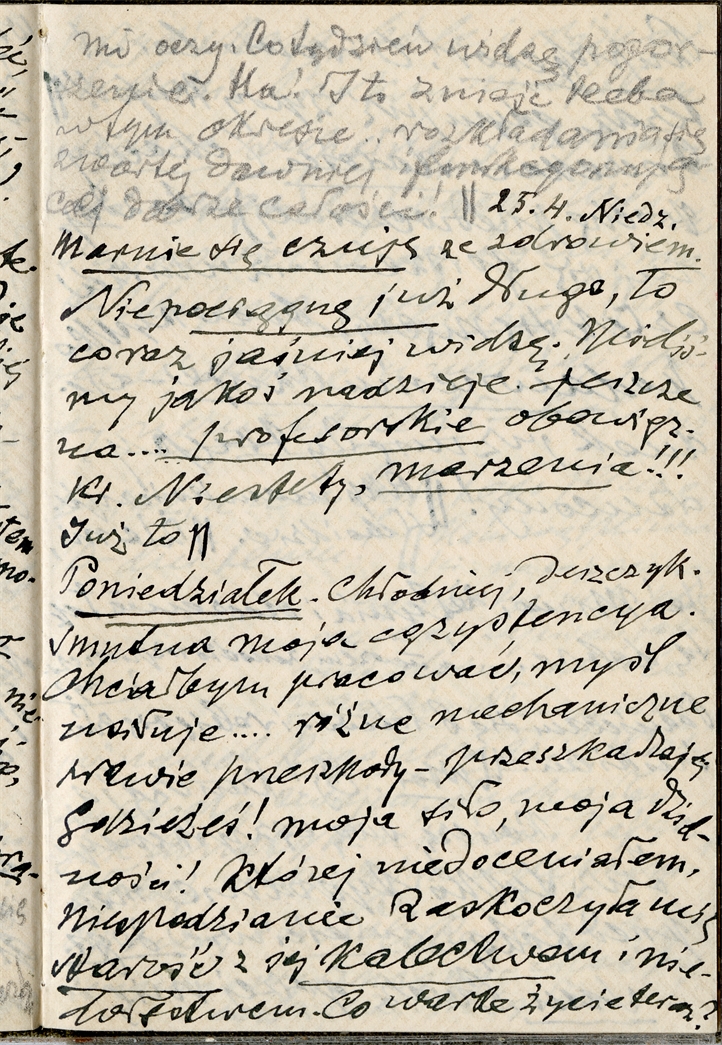 mi oczy. Co tydzień widzę pogor-
szenie. Ha! I to znieść trzeba
w tym okresie.. rozkładania się
zwartej dawniej i funkcjonują-
cej dobrze całości! || 25.4. Niedz.
Marnie się czuję ze zdrowiem.
Nie pociągnę już długo, to
coraz jaśniej widzę.
my jakoś nadzieję jeszcze
na.... profesorskie obowiąz-
ki. Niestety, marzenia!!!
Już to ||
Poniedziałek. Chłodniej, deszczyk.
Smutna moja egzystencya.
Chciałbym pracować, myśl
usiłuje.... różne mechaniczne
prawie przeszkody – przeszkadzają
Gdzieżeś! moja siło, moja dziel-
ności! której nie doceniałem,
Niespodzianie zaskoczyła mię
starość z jej kalectwem i nie-
dołęstwem. Co warte życie teraz?